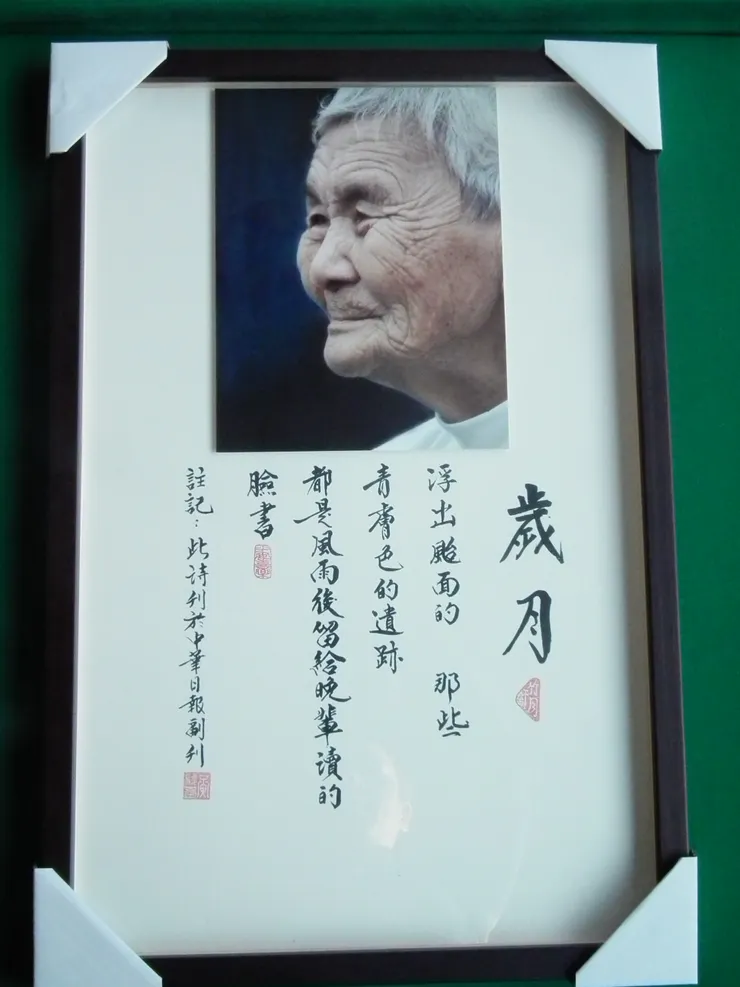 歲月
浮出颱面的 那些
青膚色的遺跡
都是風雨後留給晚輩讀的
臉書
註記：此詩刊於中華日報副刊